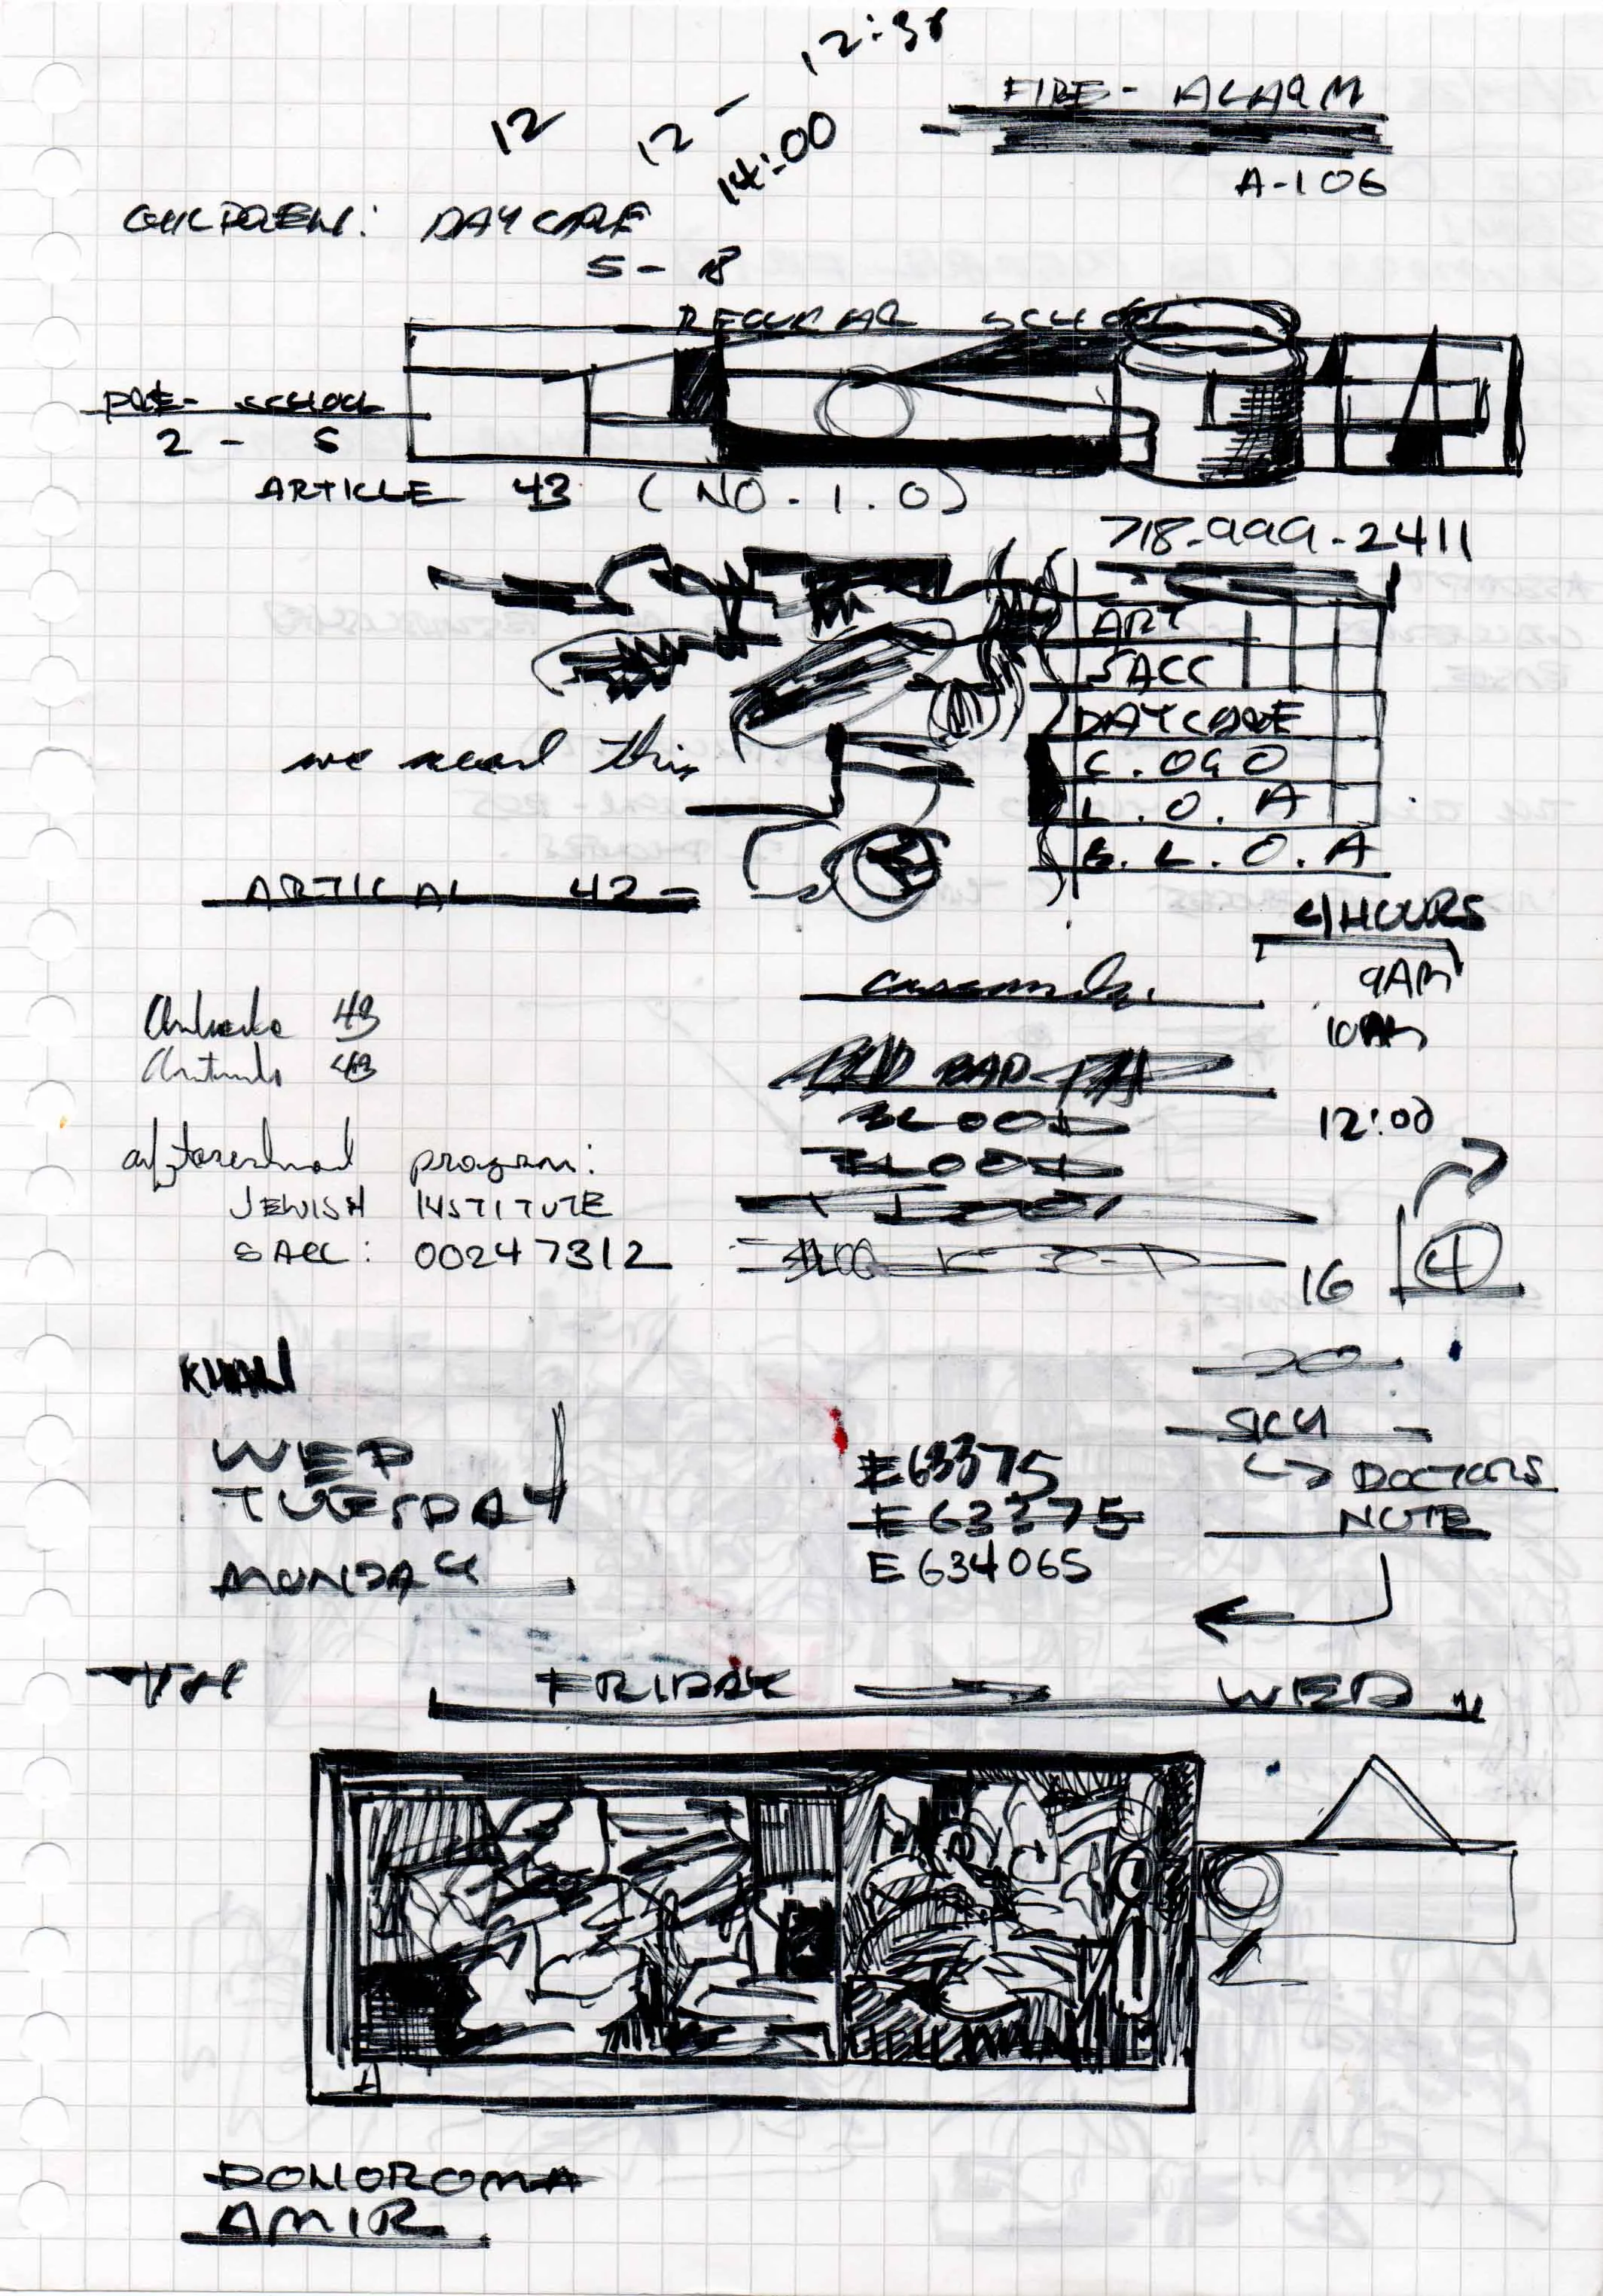 12:38
FIRE - ALARM
12
12 -
14:00
A-106
CHILDREN: DAYCARE
5 - 8
REGULAR SCHOOL
PRE- SCHOOL
2 - 5
ARTICLE 43 (NO.1.0)
718-999-2411
ART
SACC
DAYCARE
we need this
C.OGO
L.O.A
E.L.O.A
ARTICAL 42-
4/HOURS
9AM
10AM
43
43
12:00
afterschool program:
BLOOD
BLOOD
JEWISH INSTITUTE
SACC: 00247312
16 4
20
KHAN
SICK
WED
E63375
DOCTORS
TUESDAY
E63375
NOTE
MONDAY
E634065
TH FRIDAY WED
A
DONOROMA
AMIR